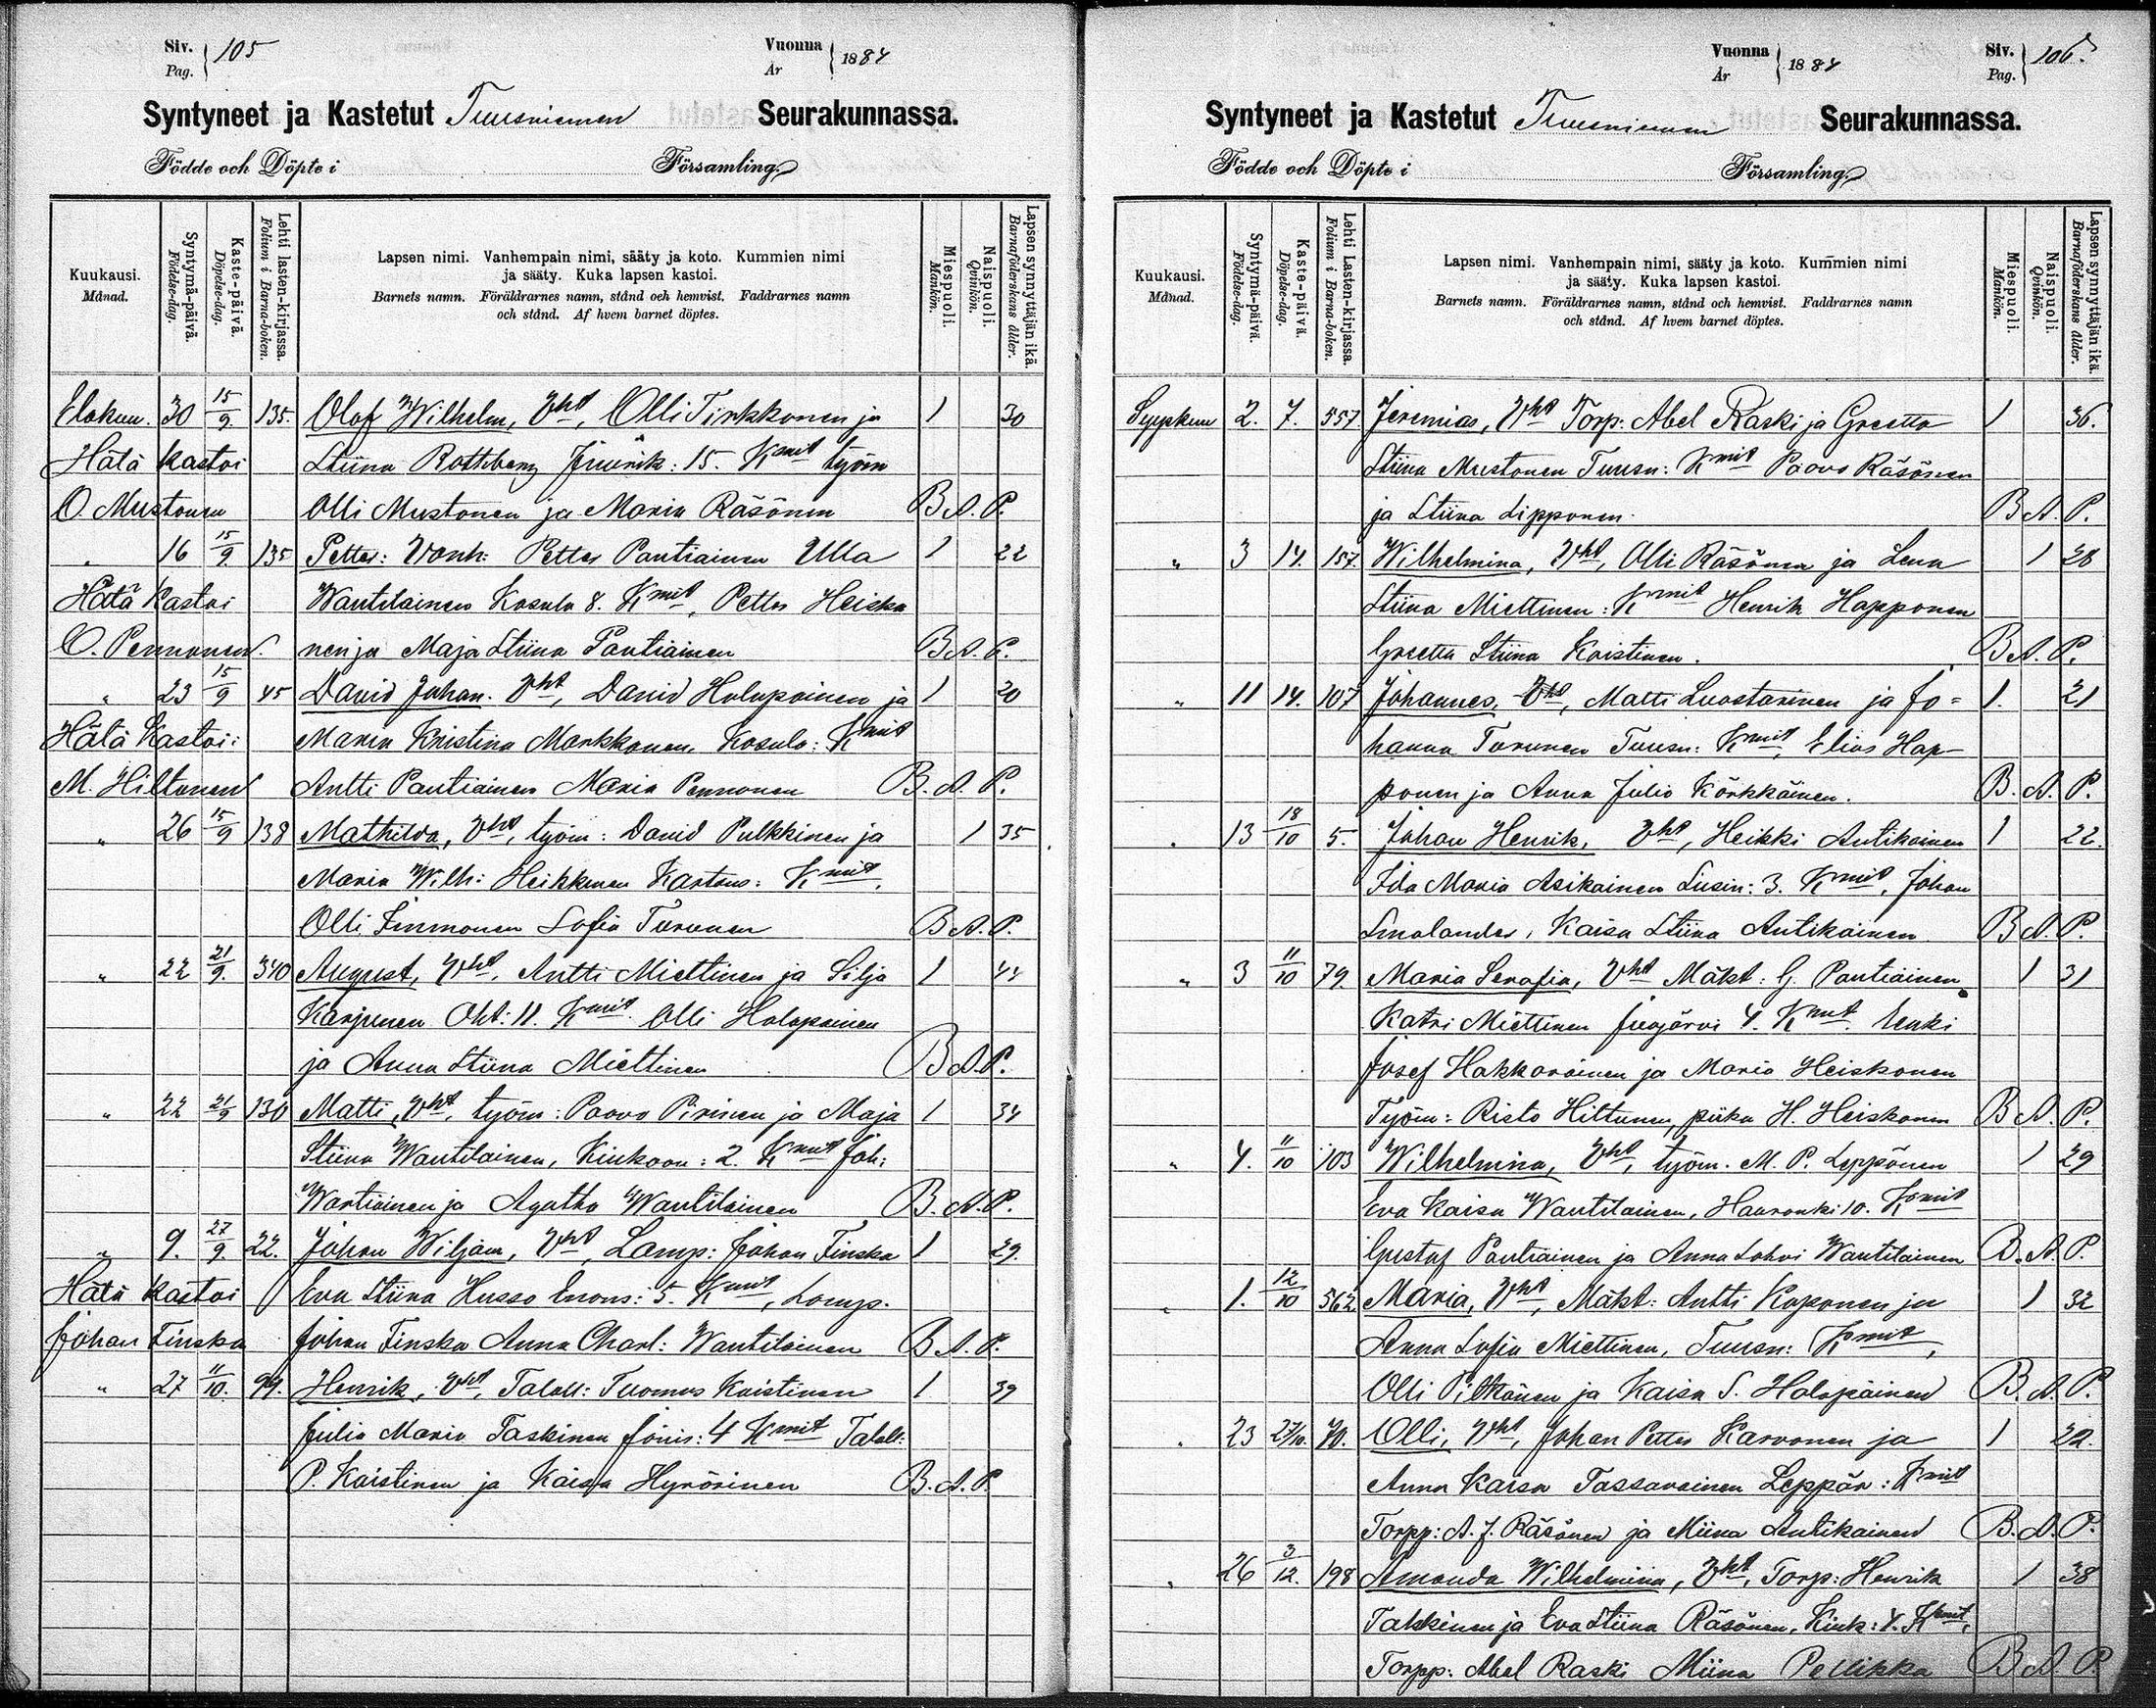 Siv. Pag. 105
Vuonna År 1884
Syntyneet ja Kastetut Tuusniemen Seurakunnassa.
Födde och Döpte i Församling.
Kuukausi. Månad.
Syntymä-päivä. Födelse-dag.
Kaste-päivä. Döpelse-dag.
Lehti lasten-kirjassa. Folium i Barna-boken.
Lapsen nimi. Vanhempain nimi, sääty ja koto. Kummien nimi
ja sääty. Kuka lapsen kastoi.
Barnets namn. Föräldrarnes namn, stånd och hemvist. Faddrarnes namn
och stånd. Af hvem barnet döptes.
Miespuoli. Mankön.
Naispuoli. Qvinkön.
Lapsen synnyttäjän ikä. Barnaföderskans ålder.
Elokuu. 30 15/9. 135. Olof Wilhelm, Vht, Olli Tirkkonen ja 1 30
Hätä kastoi Stiina Rottberg Juurik: 15. Kmit työm
O. Mustonen Olli Mustonen ja Maria Räsönen B. A. P.
" 16 15/9 135 Petter: Vanh: Petter Pantiainen Ulla 1 22
Hätä Kastoi Wantilainen Kosula 8. Kmit, Petter Heiska
O. Pennonen. nen ja Maja Stiina Pantiainen B. A. P.
" 23 15/9 45 David Johan. Vht, David Holopainen ja 1 20
Hätä Kastoi: Maria Kristina Markkanen. Kosula: Kmit
M. Hiltunen Antti Pantiainen Maria Pennonen B. A. P.
" 26 15/9 138 Mathilda, Vht, työm: David Pulkkinen ja 1 35
Maria Wilh: Heikkinen Kartano: Kmit.
Olli Immonen Sofia Turunen B. A. P.
" 22 21/9. 340 August, Vht, Antti Miettinen ja Silja 1 44
Karjunen Okt: 11. Kmit. Olli Holopainen
ja Anna Stiina Miettinen B. A. P.
" 22 21/9 130 Matti, Vht, työm: Paavo Pirinen ja Maja 1 34
Stiina Wantilainen, Kiukoon: 2. Kmit Joh:
Wartiainen ja Agatha Wantilainen B. A. P.
" 9. 27/9. 22. Johan Wiljam, Vht, Lamp: Johan Finska 1 29.
Hätä kastoi Eva Stiina Husso Enons: 5. Kmit, Lamp.
Johan Finska Johan Finska Anna Charl: Wantilainen B. A. P.
" 27 11/10. 99. Henrik, Vht, Talall: Tuomas Kaistinen 1 39
Julia Maria Taskinen Jöuis: 4 Kmit Talall:
P. Kaistinen ja Kaisa Hyrösinen B. A. P.
Vuonna År 1884
Siv. Pag. 106.
Syntyneet ja Kastetut Tuusniemen Seurakunnassa.
Födde och Döpte i Församling.
Kuukausi. Månad.
Syntymä-päivä. Födelse-dag.
Kaste-päivä. Döpelse-dag.
Lehti Lasten-kirjassa. Folium i Barna-boken.
Lapsen nimi. Vanhempain nimi, sääty ja koto. Kummien nimi
ja sääty. Kuka lapsen kastoi.
Barnets namn. Föräldrarnes namn, stånd och hemvist. Faddrarnes namn
och stånd. Af hvem barnet döptes.
Miespuoli. Mankön.
Naispuoli. Qvinkön.
Lapsen synnyttäjän ikä. Barnaföderskans ålder.
Syyskuu 2. 7. 557. Jeremias, Vht Torp: Abel Raski ja Greetta 1 36.
Stiina Mustonen Tuusn: Kmit Paavo Räsönen
ja Stiina Lipponen. B. A. P.
" 3 14. 157. Wilhelmina, Vht, Olli Räsönen ja Lena 1 28
Stiina Miettinen: Kmit Henrik Happonen
Greetta Stiina Kaistinen. B. A. P.
" 11 14. 107 Johannes, Vht, Matti Luostarinen ja Jo= 1. 21
hanna Turunen Tuusn: Kmit, Elias Hap-
ponen ja Anna Julia Körkkäinen. B. A. P.
" 13 18/10 5. Johan Henrik, Vht, Heikki Antikainen 1 22.
Ida Maria Asikainen Liusin: 3. Kmit, Johan
Smolander, Kaisa Stiina Antikainen. B. A. P.
" 3 11/10 79. Maria Serafia, Vht Mäkt: G. Pantiainen 1 31
Katri Miettinen Juojärvi 4. Kmit. Lenki
Josef Hakkarainen ja Maria Heiskanen
Työm: Risto Hiltunen, piika H. Heiskanen B. A. P.
" 4. 11/10 103 Wilhelmina, Vht, työm. M. P. Leppönen 1 29
Eva Kaisa Wantilainen, Hauronki 10. Kmit
Gustaf Pantiainen ja Anna Sohvi Wantilainen B. A. P.
" 1. 12/10 562. Maria, Vht, Mäkt: Antti Koponen ja 1 32
Anna Sofia Miettinen, Tuusn: Kmit,
Olli Pitkänen ja Kaisa S. Holopainen B. A. P.
" 23 27/10. 70. Olli, Vht, Johan Petter Karvonen ja 1 22.
Anna Kaisa Tassavainen Leppär: Kmit
Torpp: A. J. Räsönen ja Miina Antikainen B. A. P.
" 26 3/12. 198 Amanda Wilhelmiina, Vht, Torp: Henrik 1 38
Takkinen ja Eva Stiina Räsönen, Kiuk: 4. Kmit,
Torpp: Abel Raski Miina Pellikka B. A. P.